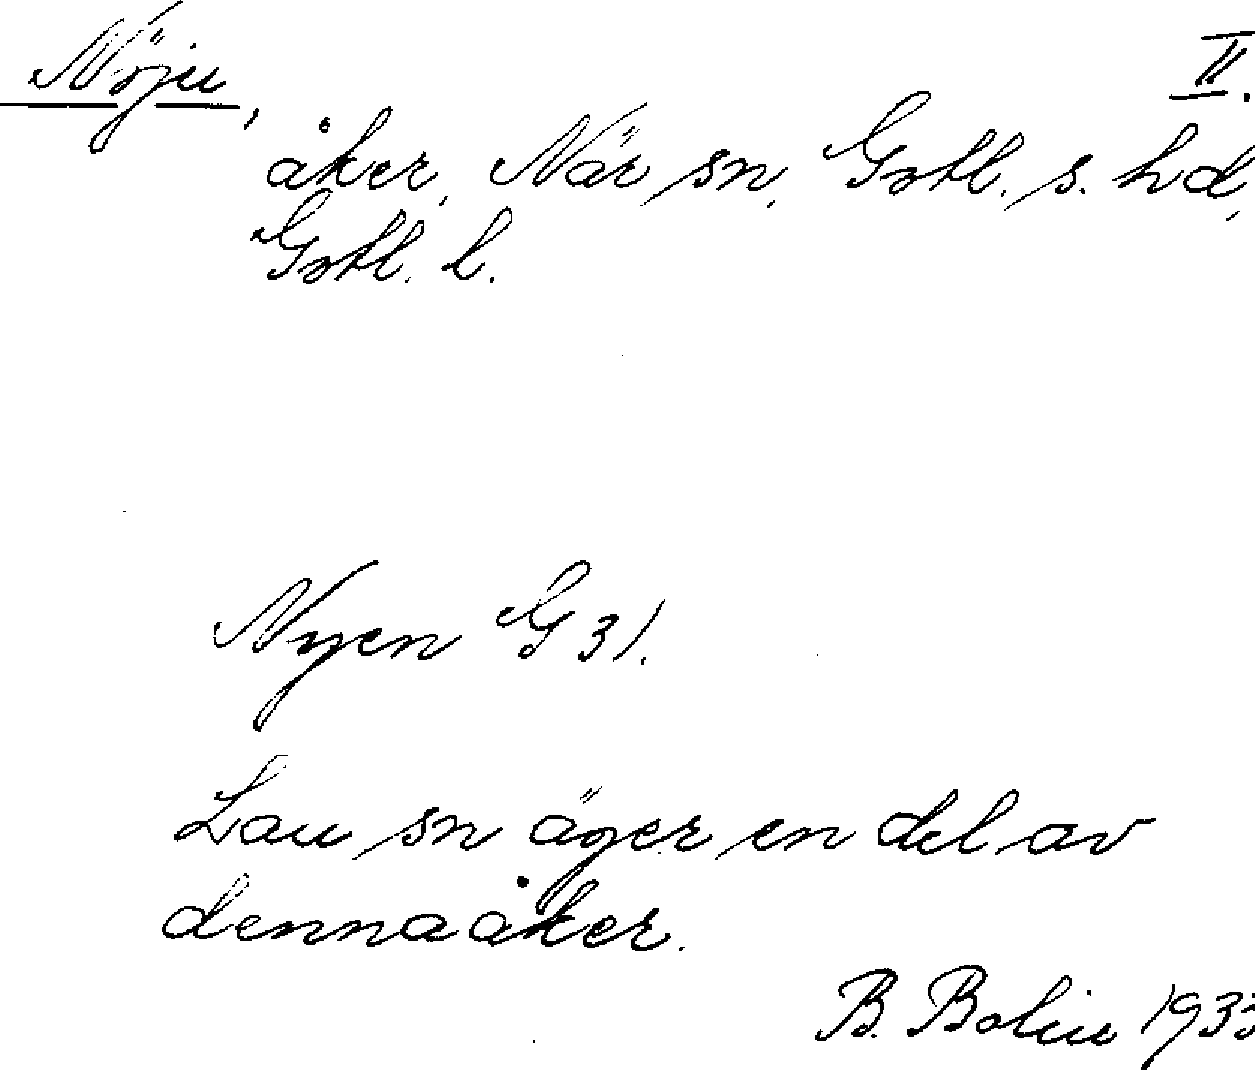 Nöju, II.
åker, När sn, Gotl. s. hd,
Gotl. l.
Nyen G 31.
Lau sn äger en del av
denna åker.
B. Bolin 1933